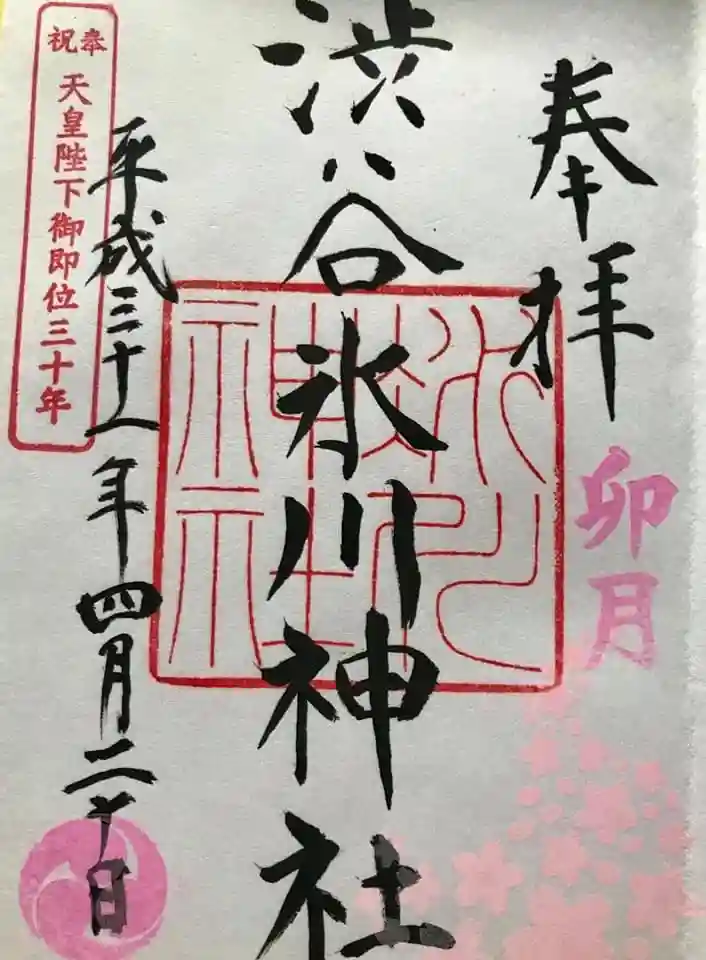 奉拝
卯月
渋谷氷川神社
平成三十一年四月二十日
奉祝
天皇陛下御即位三十年